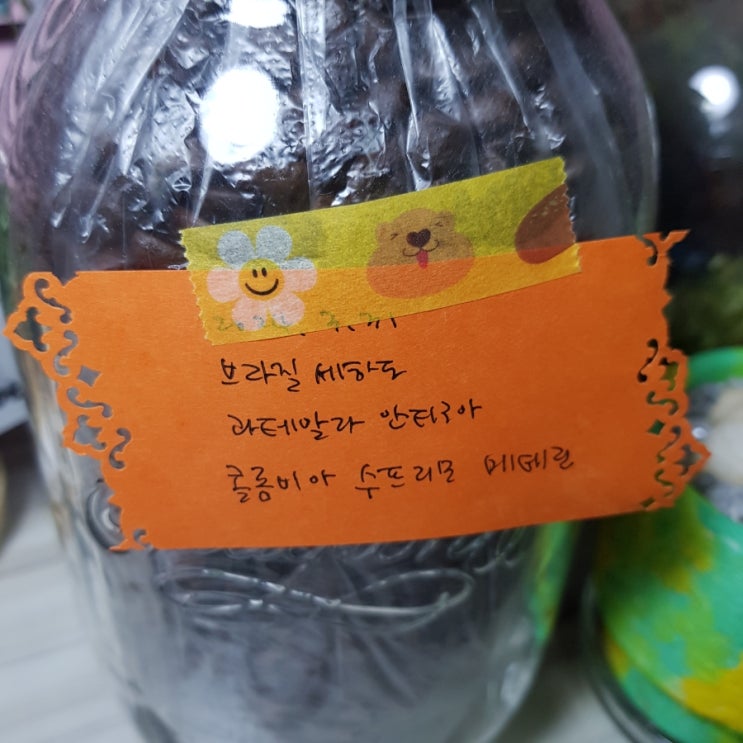 브라질 세하도
과테말라 안티구아
콜롬비아 수프리모 메데린